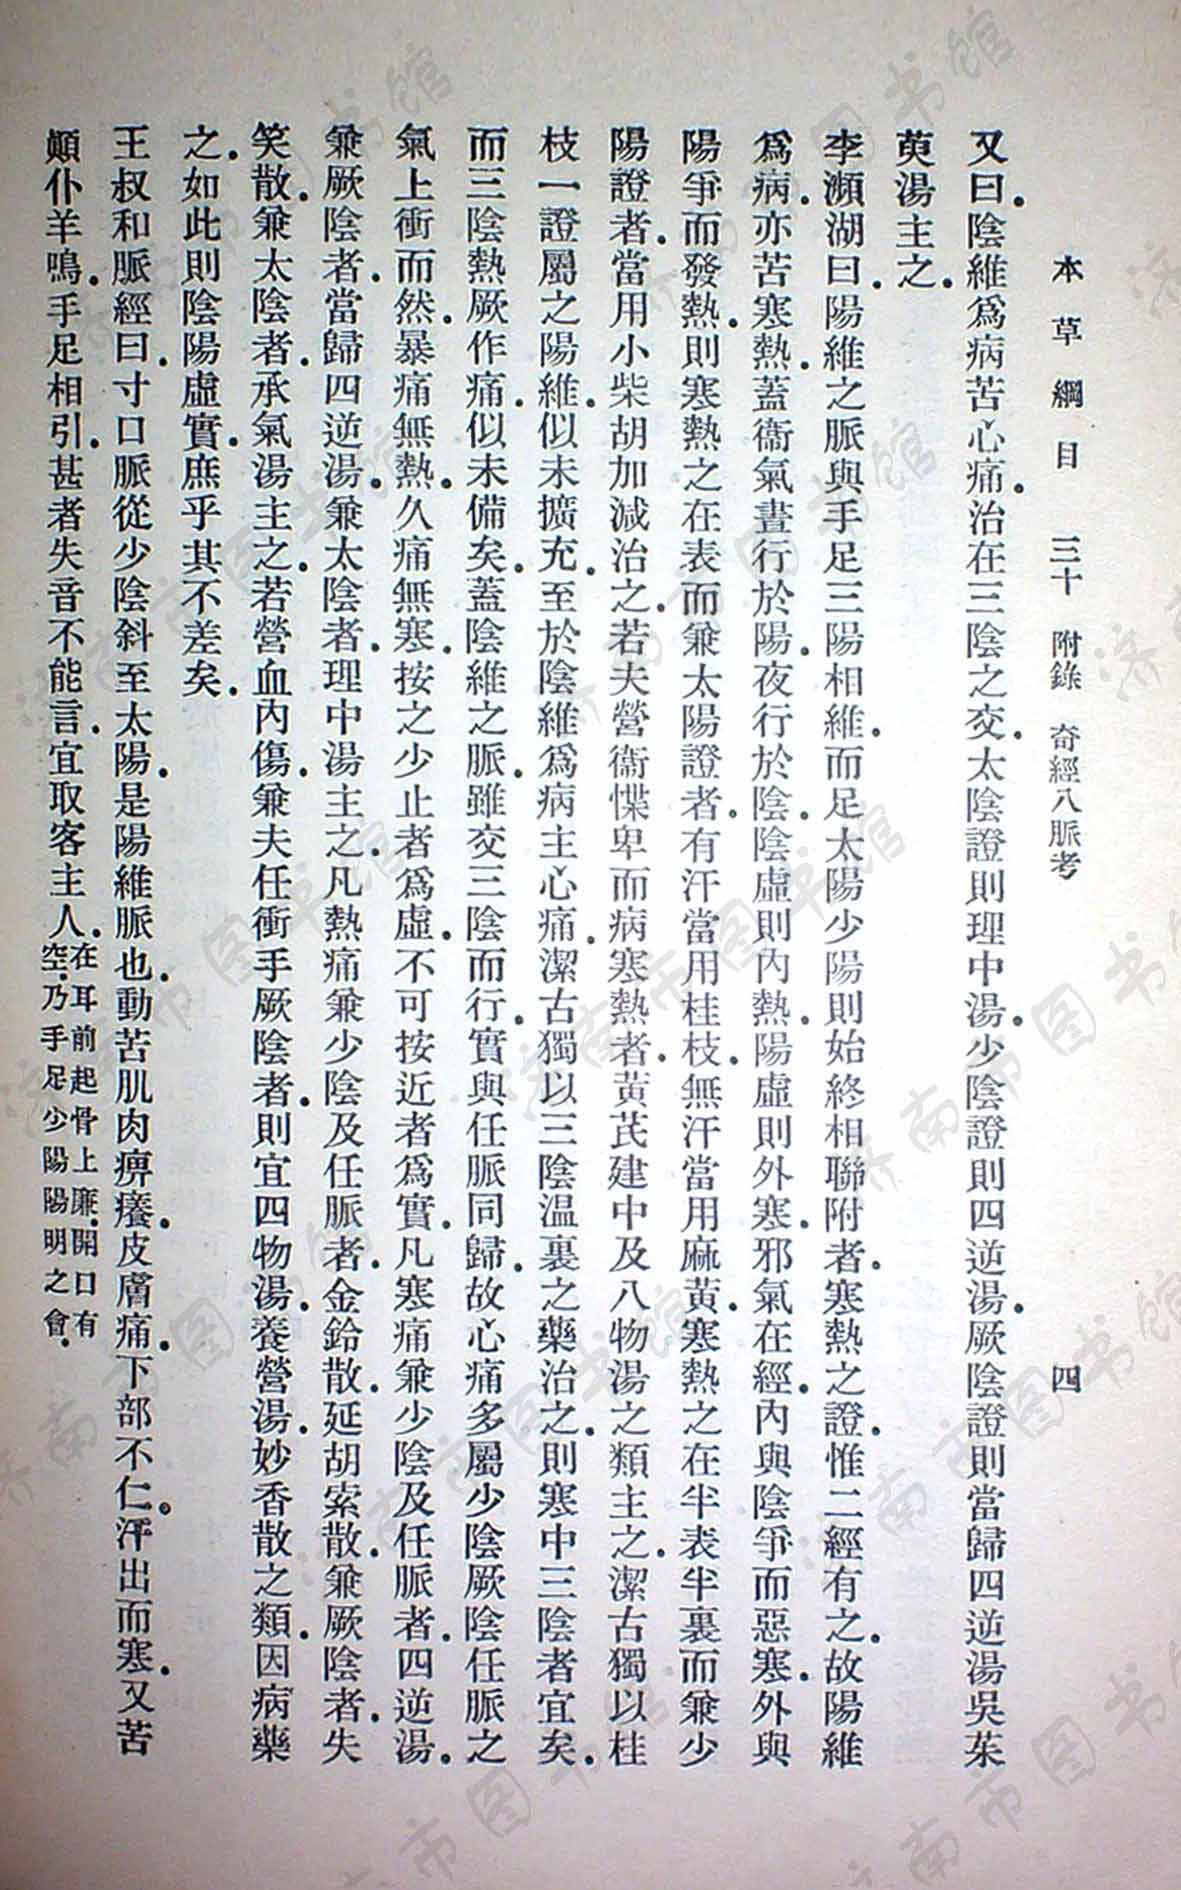 本草綱目　三十　附錄　奇經八脈考　四
又曰。陰維爲病苦心痛。治在三陰之交。太陰證則理中湯。少陰證則四逆湯。厥陰證則當歸四逆湯吳茱
萸湯主之。
李瀕湖曰。陽維之脈與手足三陽相維。而足太陽少陽則始終相聯附者。寒熱之證。惟二經有之。故陽維
爲病。亦苦寒熱。蓋衞氣晝行於陽。夜行於陰。陰虛則內熱。陽虛則外寒。邪氣在經。內與陰爭而惡寒。外與
陽爭而發熱。則寒熱之在表而兼太陽證者。有汗當用桂枝。無汗當用麻黃。寒熱之在半表半裏而兼少
陽證者。當用小柴胡加減治之。若夫營衞惵卑而病寒熱者。黃芪建中及八物湯之類主之。潔古獨以桂
枝一證屬之陽維。似未擴充。至於陰維爲病主心痛。潔古獨以三陰溫裏之藥治之。則寒中三陰者宜矣。
而三陰熱厥作痛。似未備矣。蓋陰維之脈。雖交三陰而行。實與任脈同歸。故心痛多屬少陰厥陰任脈之
氣上衝而然。暴痛無熱。久痛無寒。按之少止者爲虛。不可按近者爲實。凡寒痛兼少陰及任脈者。四逆湯。
兼厥陰者。當歸四逆湯。兼太陰者。理中湯主之。凡熱痛兼少陰及任脈者。金鈴散。延胡索散。兼厥陰者。失
笑散。兼太陰者。承氣湯主之。若營血內傷。兼夫任衝手厥陰者。則宜四物湯。養營湯。妙香散之類。因病藥
之。如此則陰陽虛實。庶乎其不差矣。
王叔和脈經曰。寸口脈從少陰斜至太陽。是陽維脈也。動苦肌肉痹癢。皮膚痛。下部不仁。汗出而寒。又苦
顚仆羊鳴。手足相引。甚者失音不能言。宜取客主人。在耳前起骨上廉。開口有
空。乃手足少陽陽明之會。